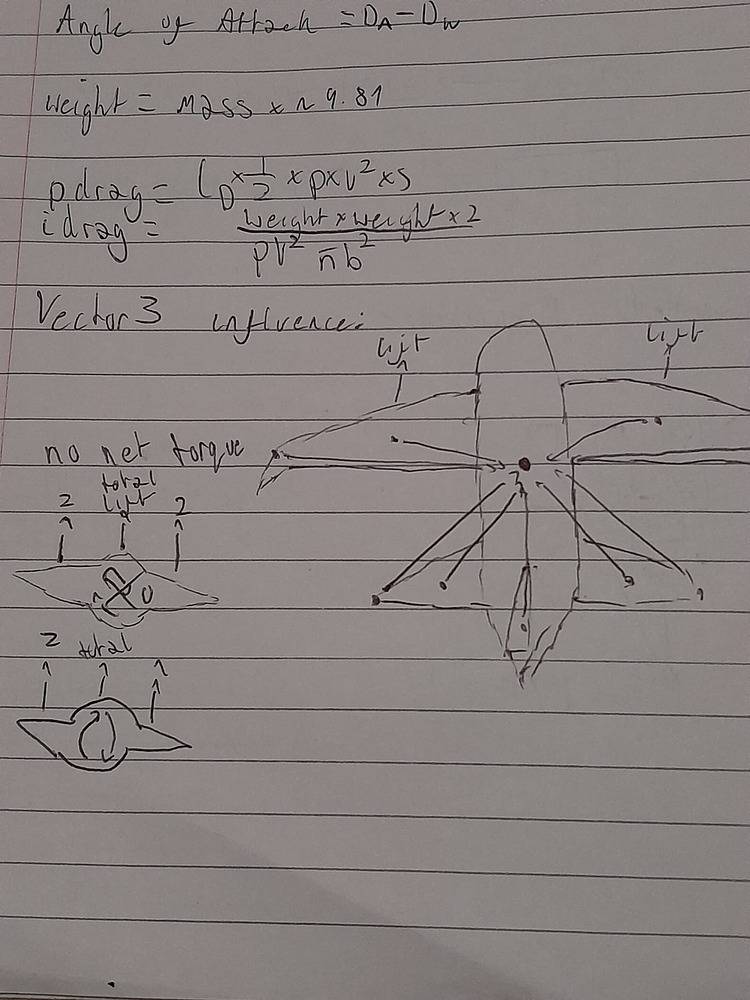 Angle of Attack = DA - DW
weight = mass x ~ 9.81
pdrag = CD x 1/2 x p x v² x s
idrag = weight x weight x 2 / pV² π b²
Vector3 influence:
lift
lift
no net torque
total
2 lift 2
0
2 total 1